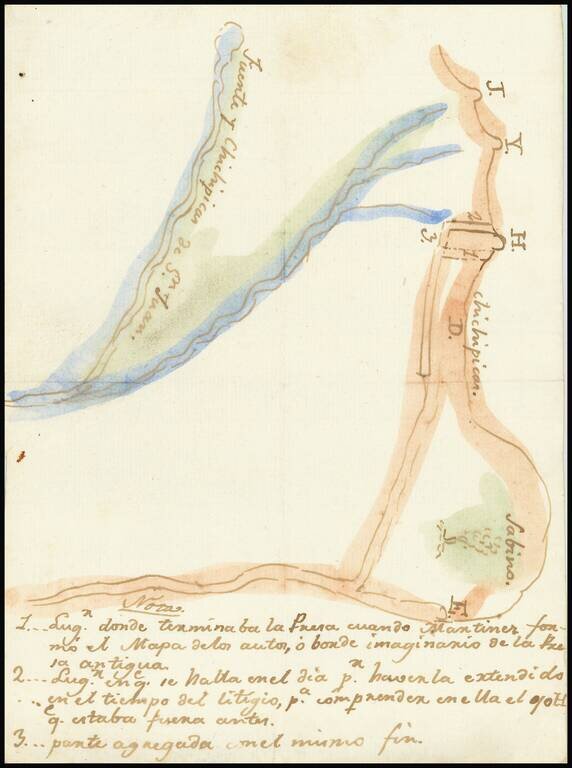 Fuente y Chichipicas
de Sn. Juan.
J.
Y.
H.
2
1.
3.
chichipicas.
D.
Sabino.
E.
Nota.
1... Lugr. donde terminaba la Presa cuando Mantinez for-
mó el Mapa delos autos, ó borde imaginario de la Pre
sa antigua.
2... Lugr. enqe. se halla enel dia pr. haverla extendido
... en el tiempo del litigio, pa. comprender enella el
qe. estaba fuera antes.
3... parte agregada conel mismo fin.